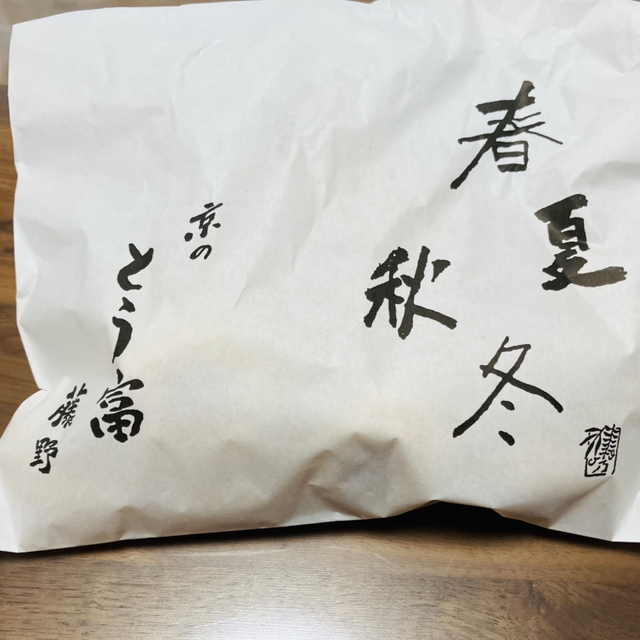 春
夏
秋
冬
京の
とう富
藤野